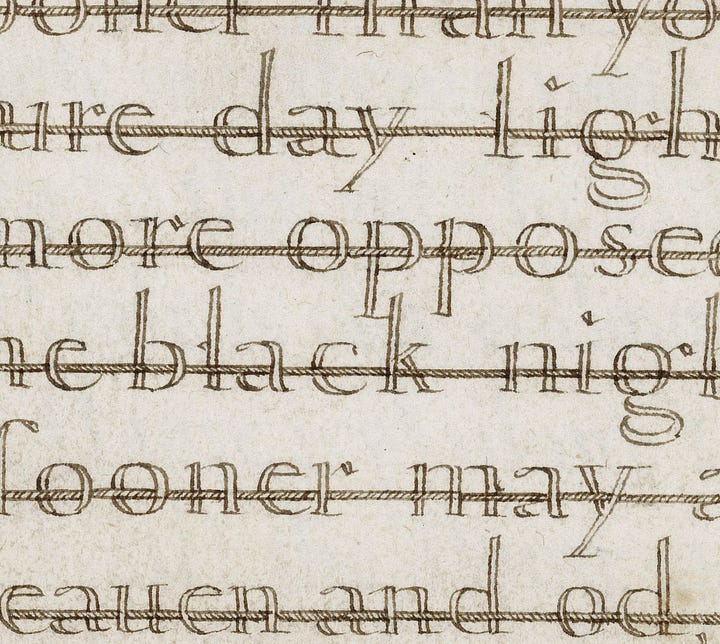 oner man yo
ure day ligh
more oppose
ne black nigh
ſooner may a
eauen and od